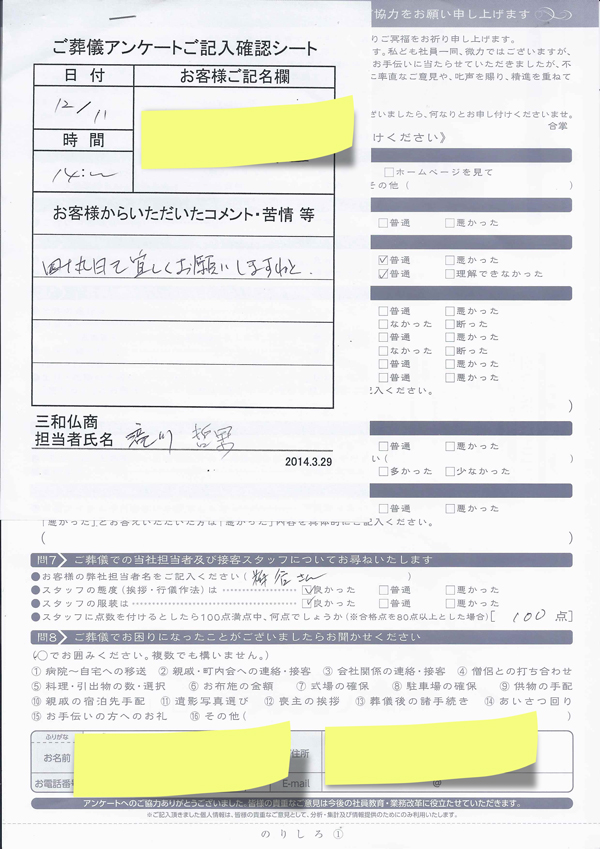 ご葬儀アンケートご記入確認シート
日 付
お客様ご記名欄
12/11
時 間
14:〜
お客様からいただいたコメント・苦情 等
四十九日で宜しくお願いしますねと.
三和仏商
担当者氏名
2014.3.29
ご協力をお願い申し上げます
りご冥福をお祈り申し上げます。
す。私ども社員一同、微力ではございますが、
お手伝いに当たらせていただきましたが、不
に率直なご意見や、叱声を賜り、精進を重ねて
ざいましたら、何なりとお申し付けくださいませ。
合掌
けください》
□ホームページを見て
その他（
□普通 □悪かった
☑普通 □悪かった
☑普通 □理解できなかった
□普通 □悪かった
□なかった □断った
□普通 □悪かった
□なかった □断った
□普通 □悪かった
□普通 □悪かった
記入ください。
）
□普通 □悪かった
い（ ）
□多かった □少なかった
□普通 □悪かった
「悪かった」とお答えいただいた方は「悪かった」内容を具体的にご記入ください。
（ ）
問7 ご葬儀での当社担当者及び接客スタッフについてお尋ねいたします
●お客様の弊社担当者名をご記入ください（ さん ）
●スタッフの態度（挨拶・行儀作法）は ☑良かった □普通 □悪かった
●スタッフの服装は ☑良かった □普通 □悪かった
●スタッフに点数を付けるとしたら100点満点中、何点でしょうか（※合格点を80点以上とした場合）［ 100 点］
問8 ご葬儀でお困りになったことがございましたらお聞かせください
（○でお囲みください。複数でも構いません。）
①病院〜自宅への移送 ②親戚・町内会への連絡・接客 ③会社関係の連絡・接客 ④僧侶との打ち合わせ
⑤料理・引出物の数・選択 ⑥お布施の金額 ⑦式場の確保 ⑧駐車場の確保 ⑨供物の手配
⑩親戚の宿泊先手配 ⑪遺影写真選び ⑫喪主の挨拶 ⑬葬儀後の諸手続き ⑭あいさつ回り
⑮お手伝いの方へのお礼 ⑯その他（ ）
ふりがな
お名前
住所
お電話番号
E-mail
@
アンケートへのご協力ありがとうございました。皆様の貴重なご意見は今後の社員教育・業務改革に役立たせていただきます。
※ご記入頂きました個人情報は、皆様の貴重なご意見として、分析・集計及び情報提供のためにのみ利用いたします。
のりしろ①